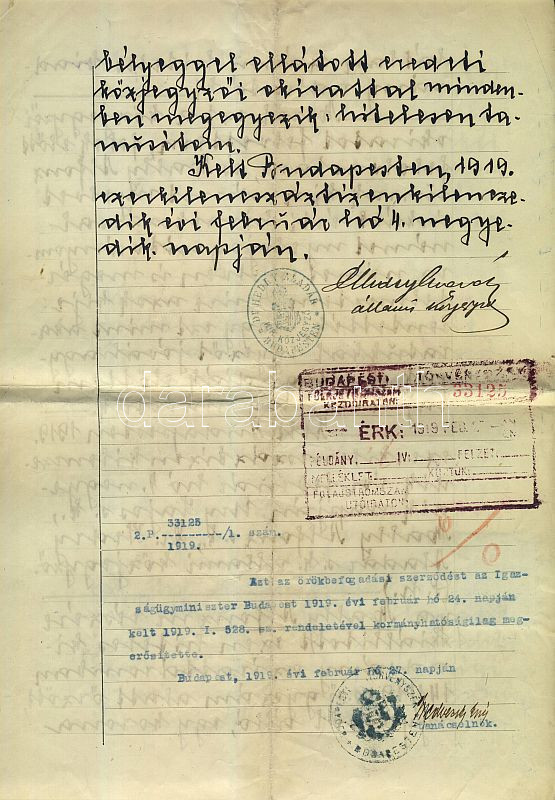 bélyeggel ellátott eredeti
közjegyzői okirattal minden-
ben megegyezik: hitelesen ta-
núsítom.
Kelt Budapesten, 1919.
ezerkilencszáztizenkilencze-
dik évi február hó 4. negye-
dik napján.
állami közjegyző
ALADÁR
BUDAPESTEN
BUDAPESTI TÖRVÉNYSZÉK
33125
KÉZBIRATON:
ÉRK: 1919 FEB.
PÉLDÁNY: IV: FELZET:
MELLÉKLET: KÖZTÜK:
FOLYÓSTRÓMSZÁM
UTÓIRATON:
darabanth
33125
2.P.----------/1. szám.
1919.
Azt az örökbefogadási szerződést az Igaz-
ságügyminiszter Budapest 1919. évi február hó 24. napján
kelt 1919. I. 528. sz. rendeletével kormányhatóságilag meg-
erősítette.
Budapest, 1919. évi február hó 27. napján
tanácselnök.
BUDAPESTEN